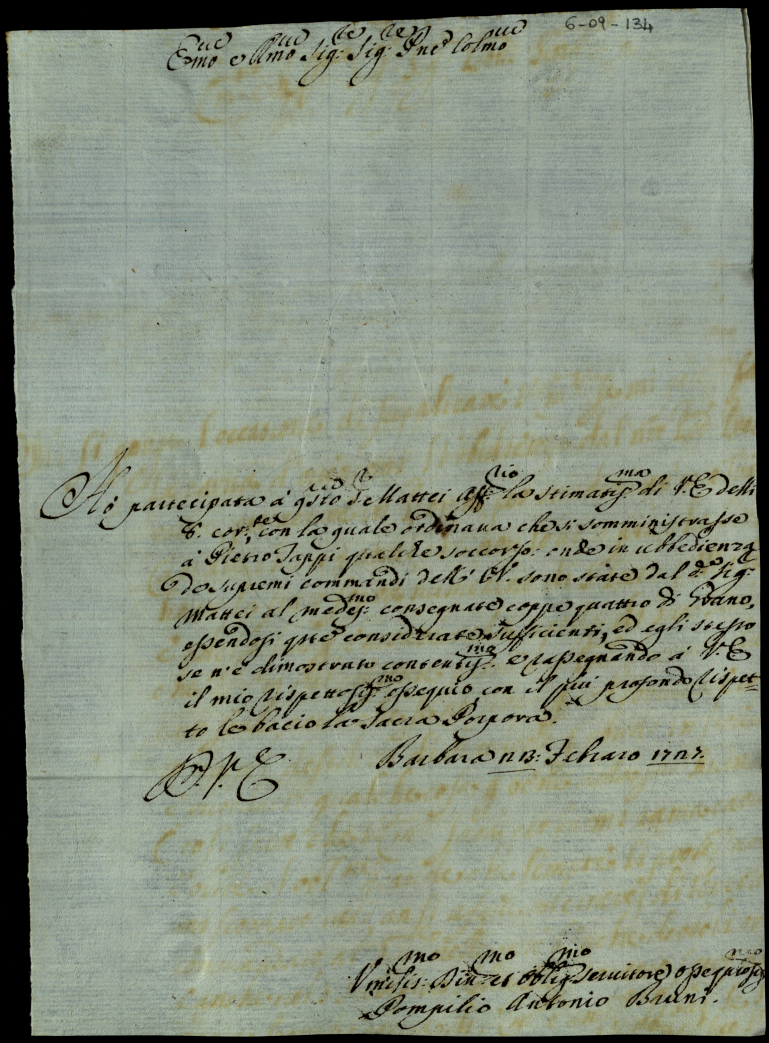 6-09-134
Em̃o e Rm̃o Sig:re Sig:re Pne Colmo
Hò partecipata à qsto Sr Mattei Aff:rio la stimatis:ma di V. E. delli
8. cor:te con la quale ordinava che si somministrasse
à Pietro Tappi qualche soccorso: onde in ubbedienza
de supremi commandi dell' E.V. sono state dal d.o Sig:
Mattei al medes:mo consegnate coppe quattro di Grano,
essendosi qste considerate sufficienti, ed egli stesso
se n'è dimostrato contentis:mo e rassegnando à V. E.
il mio rispettosis:mo ossequio con il più profondo rispet-
to le bacio la Sacra Porpora.
D. V. E. Barbara n 13: Febraro 1727.
Vmilis:mo Din:mo et oblig:mo servitore ossequiosis:mo
Pompilio Antonio Bruni.